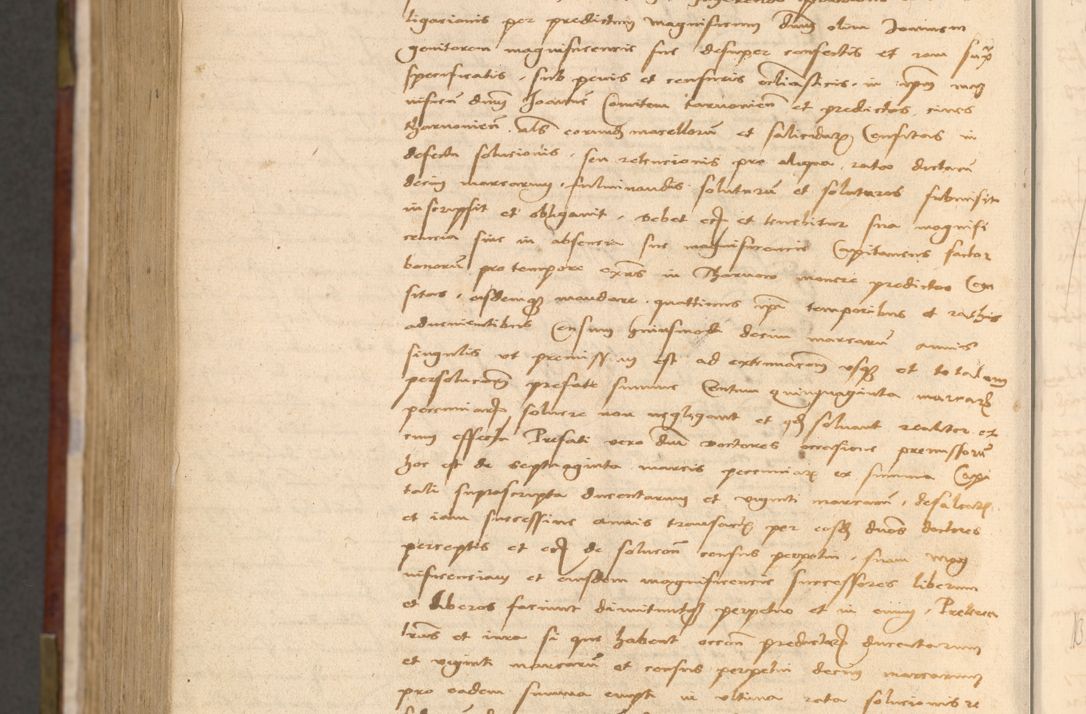 ligacionis per predictum magnificum dnm olim Joannem
genitorem magnificencie sue desuper confectis et iam supra
specificatis, sub penis et censuris ecclesiasticis, in ipsum mag
nificum dnm Joannem Comitem tarnovien et predictos cives
tharnovien als eorum macellorum et salicidarum Censitas in
defectu solucionis, seu retencionis pro aliqua ratoo dictarum
decem marcarum, fulminandis soluturum et soluturos submisit
inscripsit et obligavit, Debet eciam et tenebitur sua magnifi
cencia sive in absencia sue magnificencie Capitaneus factor
bonorum pro tempore exns in Tharnow monere predictos Cen
sitas, eisdemque mandare, quatinus ipsi temporibus et ratis
advenientibus Censum huiusmodi decem marcarum annis
singulis ut premissum est ad extremacem usque et totalem
persolucionem prefate summe Centum quinquaginta marcarum
pecuniarum solvere non negligant et quod solvant realiter et
cum effectu Prefati vero dni doctores occasione premissorum
hoc est de septuaginta marcis pecuniarum ex summa Capi
tali suprascripta ducentarum et viginti marcarum, defalcatis
et iam successive annis transactis per eosdem dnos doctores
perceptis et eciam de solucione census perpetui, suam Mag
nificenciam et eiusdem magnificencie successores liberum
et liberos faciunt dimittuntque perpetuo et in evum, Preterea
lras et iura si que habent occasione predictarum ducentarum
et viginti marcarum et census perpetui decem marcarum
pro eadem summa empti in ultima rata solucionis re